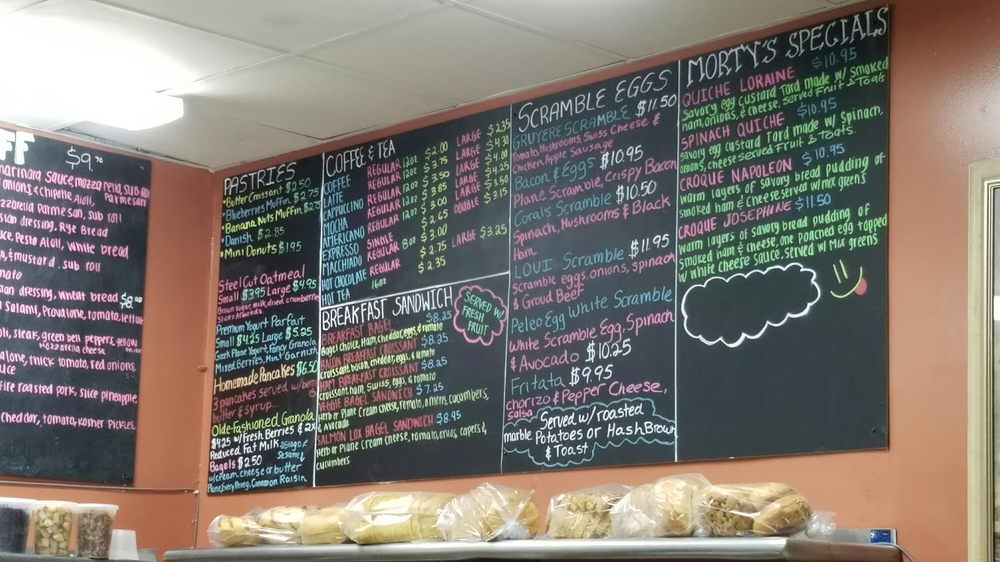 FF
$9.70
marinara sauce, mozzarella, sub roll
onions, & chipotle Aioli, Parmesan
mozzarella Parmesan, sub roll
dressing, Rye Bread
Pesto Aioli, white bread
& mustard, sub roll
dressing, wheat bread $8.00
Salami, Provalone, tomato, lettuce
steak, green bell peppers,
mozzarella cheese
thick tomato, red onions,
fire roasted pork, slice pineapple
cheddar, tomato, kosher Pickel
PASTRIES
• Butter Croissant $2.50
• Blueberries Muffin $2.75
• Banana Nuts Muffin $2.75
• Danish $2.85
• Mini Donuts $1.95
Steel Cut Oatmeal
Small $3.95 Large $4.95
Brown sugar, milk, dried cranberries
Slices Almonds
Premium Yogurt Parfait
Small $4.25 Large $5.25
Greek Plane Yogurt, Fancy Granola
Mixed Berries, Mint Garnish
Homemade Pancakes $6.50
3 pancakes served w/berries
butter & syrup...
Olde-Fashioned Granola
$4.25 w/Fresh Berries & 2%
Reduced Fat Milk
Bagels $2.50
w/cream cheese or butter
Plane, Everything, Cinnamon Raisin
Asiago &
Sesame
COFFEE & TEA
COFFEE REGULAR 12oz $2.00 LARGE $2.35
LATTE REGULAR 12oz $3.75 LARGE $4.30
CAPPUCCINO REGULAR 12oz $3.75 LARGE $4.30
MOCHA REGULAR 12oz $3.50 LARGE $4.25
AMERICANO REGULAR 12oz $3.00 LARGE $3.50
EXPRESSO SINGLE $2.65 DOUBLE $3.15
MACCHIADO REGULAR 8oz $3.00
HOT CHOCOLATE REGULAR $2.75 LARGE $3.25
HOT TEA 16oz $2.35
BREAKFAST SANDWICH
SERVED W/
FRESH
FRUIT
BREAKFAST BAGEL $8.25
Bagel choice, Ham, cheddar, eggs, & tomato
BACON BREAKFAST CROISSANT $8.25
croissant, bacon, cheddar, eggs, & tomato
HAM BREAKFAST CROISSANT $8.25
croissant, ham, Swiss, eggs, & tomato
VEGGIE BAGEL SANDWICH $7.25
Herb or Plane Cream cheese, tomato, onions, cucumbers,
& Avocado
SALMON LOX BAGEL SANDWICH $8.95
Herb or Plane Cream cheese, tomato, onios, capers &,
cucumbers
SCRAMBLE EGGS
GRUYERE SCRAMBLE $11.50
Tomato, Mushrooms, Swiss Cheese &
Chicken Apple Sausage
Bacon & Eggs $10.95
Plane Scramble, Crispy Bacon
Coral's Scramble $10.50
Spinach, Mushrooms & Black
Ham
LOUI Scramble $11.95
scramble eggs, onions, spinach
& Groud Beef
Peleo Egg White Scramble
White Scramble Egg, Spinach
& Avocado $10.25
Fritata $9.95
chorizo & Pepper Cheese,
Salsa
Served w/roasted
marble Potatoes or Hash Brown
& Toast
MORTY'S SPECIALS
QUICHE LORAINE $10.95
Savory egg custard Tard made w/ smoked
ham, onions, & cheese. Served Fruit & Toats
SPINACH QUICHE $10.95
savory egg custard Tard made w/ Spinach,
onions, cheese served Fruit & Toats.
CROQUE NAPOLEON $10.95
warm layers of savory bread pudding of
smoked ham & cheese, served w/mix greens
CROQUE JOSEPHINE $11.50
warm layers of savory bread pudding of
smoked ham & cheese, one poached egg topped
w/ white cheese sauce. Served w/ Mix greens